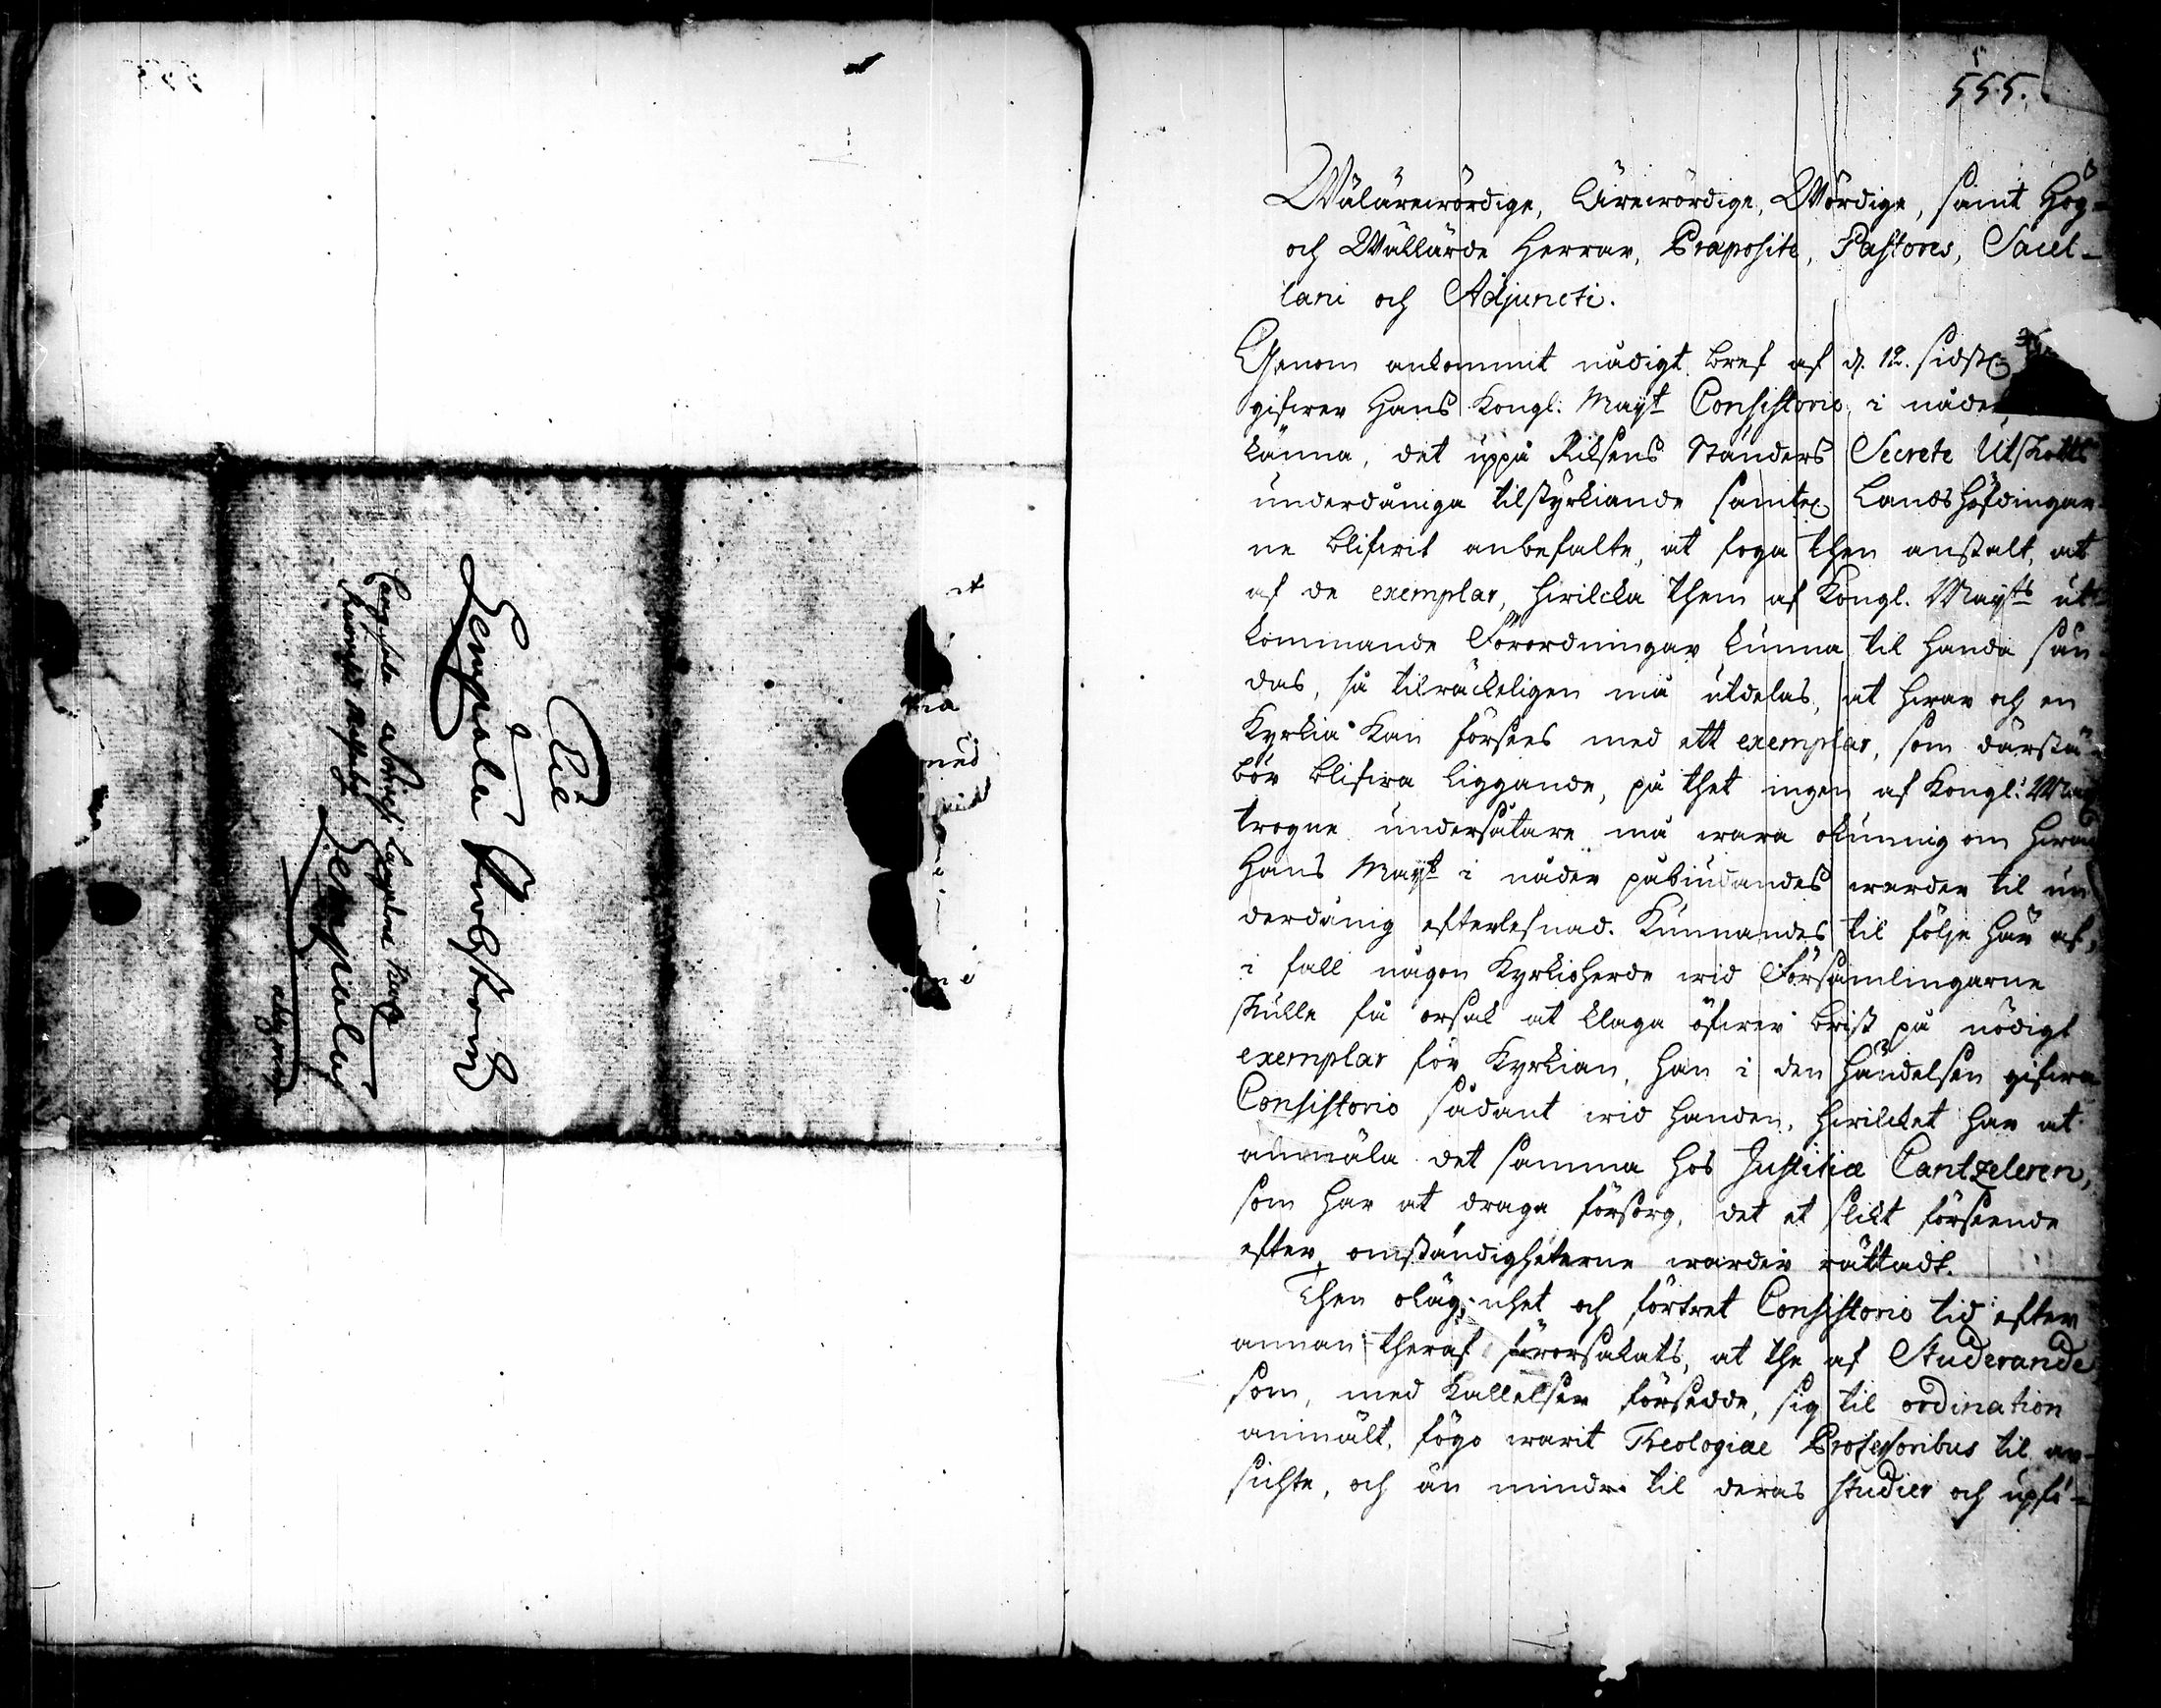 Til
Lempala Prosteri
Lempälä
555.
Wälärewördige, Ärewördige, Wördige, samt Hög-
och Wällärde Herrar, Præpositi, Pastores, Sacel-
lani och Adjuncti.
Genom ankommit nådigt bref af d. 12. sidstl.
gifwer Hans Kongl: Mayt Consistorio i nåder
känna, det uppå Riksens Ständers Secrete Utskotts
underdåniga tilstyrkiande samtel. Landshöfdingar-
ne blifwit anbefalte, at foga then anstalt, at
af de exemplar, hwilcka them af Kongl. Mayts ut-
kommande Förordningar kunna til handa sän-
das, så tilräckeligen må utdelas, at hwar och en
Kyrkia kan försees med ett exemplar, som därstä-
bör blifwa liggande, på thet ingen af Kongl: May
trogne undersåtare må wara okunnig om hwad
Hans Mayt i nåder påbiudandes warder til un
derdånig efterlefnad. Kunnandes til följe här af,
i fall någon Kyrkioherde wid Församlingarne
skulle få orsak at klaga öfwer brist på nödigt
exemplar för Kyrkian, han i den händelsen gifwa
Consistorio sådant wid handen, hwilcket har at
anmäla det samma hos Justitiæ Cantzeleren,
som har at draga försorg, det et slikt förseende
efter omständigheterne warder rättadt.
Then olägenhet och förtret Consistorio tid efter
annan theraf förorsakats, at the af Studerande
som, med kallelser försedde, sig til ordination
anmält, fögo warit Theologiae Professoribus til an-
sichte, och än mindre til deras studier och upfö-